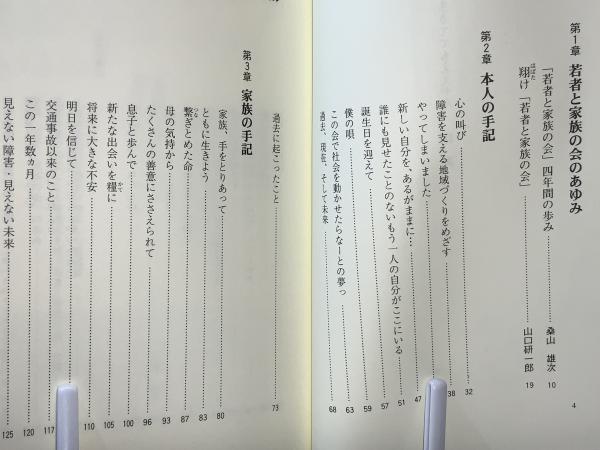 第1章 若者と家族の会のあゆみ
「若者と家族の会」四年間の歩み……桑山 雄次 10
翔け「若者と家族の会」……山口研一郎 19
はばた
第2章 本人の手記
心の叫び……32
障害を支える地域づくりをめざす……38
やってしまいました……47
新しい自分を、あるがままに………51
誰にも見せたことのないもう一人の自分がここにいる……57
誕生日を迎えて……59
僕の唄……63
この会で社会を動かせたらなーとの夢っ
過去、現在、そして未来……68
4
過去に起こったこと……73
第3章 家族の手記
家族、手をとりあって……80
ともに生きよう……83
繋ぎとめた命……87
つな
母の気持から……93
たくさんの善意にささえられて……96
息子と歩んで……100
新たな出会いを糧に……105
かて
将来に大きな不安……110
明日を信じて
交通事故以来のこと……117
この一年数ヵ月……120
見えない障害・見えない未来……125